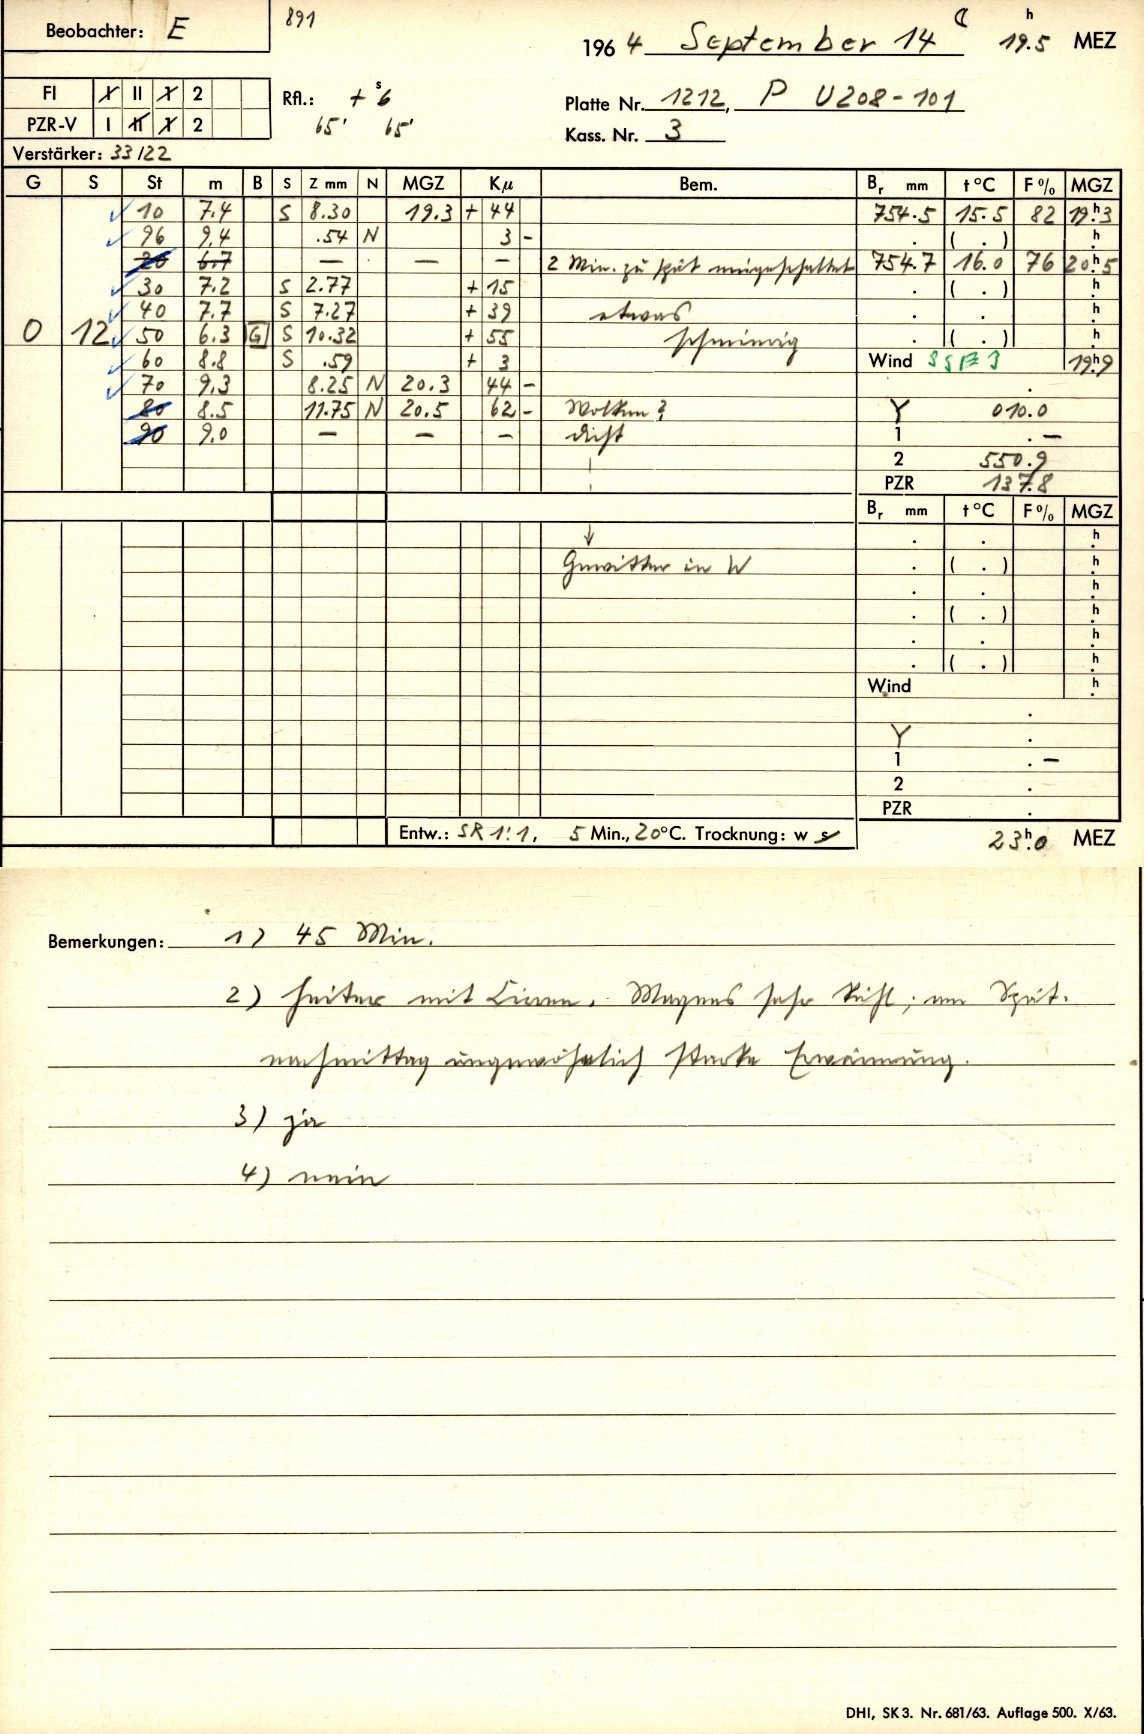 Beobachter: E 891
1964 September 14 19.5 h MEZ
FI I II 1 2 Rfl.: + 6 s
PZR-V I II 1 2 65' 65'
Platte Nr. 1212, P U208-101
Kass. Nr. 3
Verstärker: 33/22
G S St m B S Z mm N MGZ Kμ Bem. Br mm t °C F % MGZ
✓ 10 7.4 S 8.30 19.3 + 44 754.5 15.5 82 19.h3
✓ 96 9.4 .54 N 3 - . ( . ) h.
20 6.7 — — — 2 Min. zu spät eingeschaltet 754.7 16.0 76 20.h5
✓ 30 7.2 S 2.77 + 15 . ( . ) h.
✓ 40 7.7 S 7.27 + 39 etwas . . h.
0 12 ✓ 50 6.3 G S 10.32 + 55 schmierig . ( . ) h.
✓ 60 8.8 S .59 + 3 Wind SSE 3 19.h9
✓ 70 9.3 8.25 N 20.3 44 - .
80 8.5 11.75 N 20.5 62 - Wolken? Y 010.0
90 9.0 — — — dicht 1 . —
2 550.9
PZR 137.8
Br mm t °C F % MGZ
↓ . . h.
Gewitter in W . ( . ) h.
. . h.
. ( . ) h.
. . h.
. ( . ) h.
Wind h.
.
Y .
1 . —
2 .
PZR .
Entw.: SR 1:1, 5 Min., 20°C. Trocknung: w s 23.h0 MEZ
Bemerkungen: 1) 45 Min.
2) heiter mit Cirren. Morgens sehr kühl; am Spät-
nachmittag ungewöhnlich starke Erwärmung.
3) ja
4) nein
DHI, SK 3. Nr. 681/63. Auflage 500. X/63.